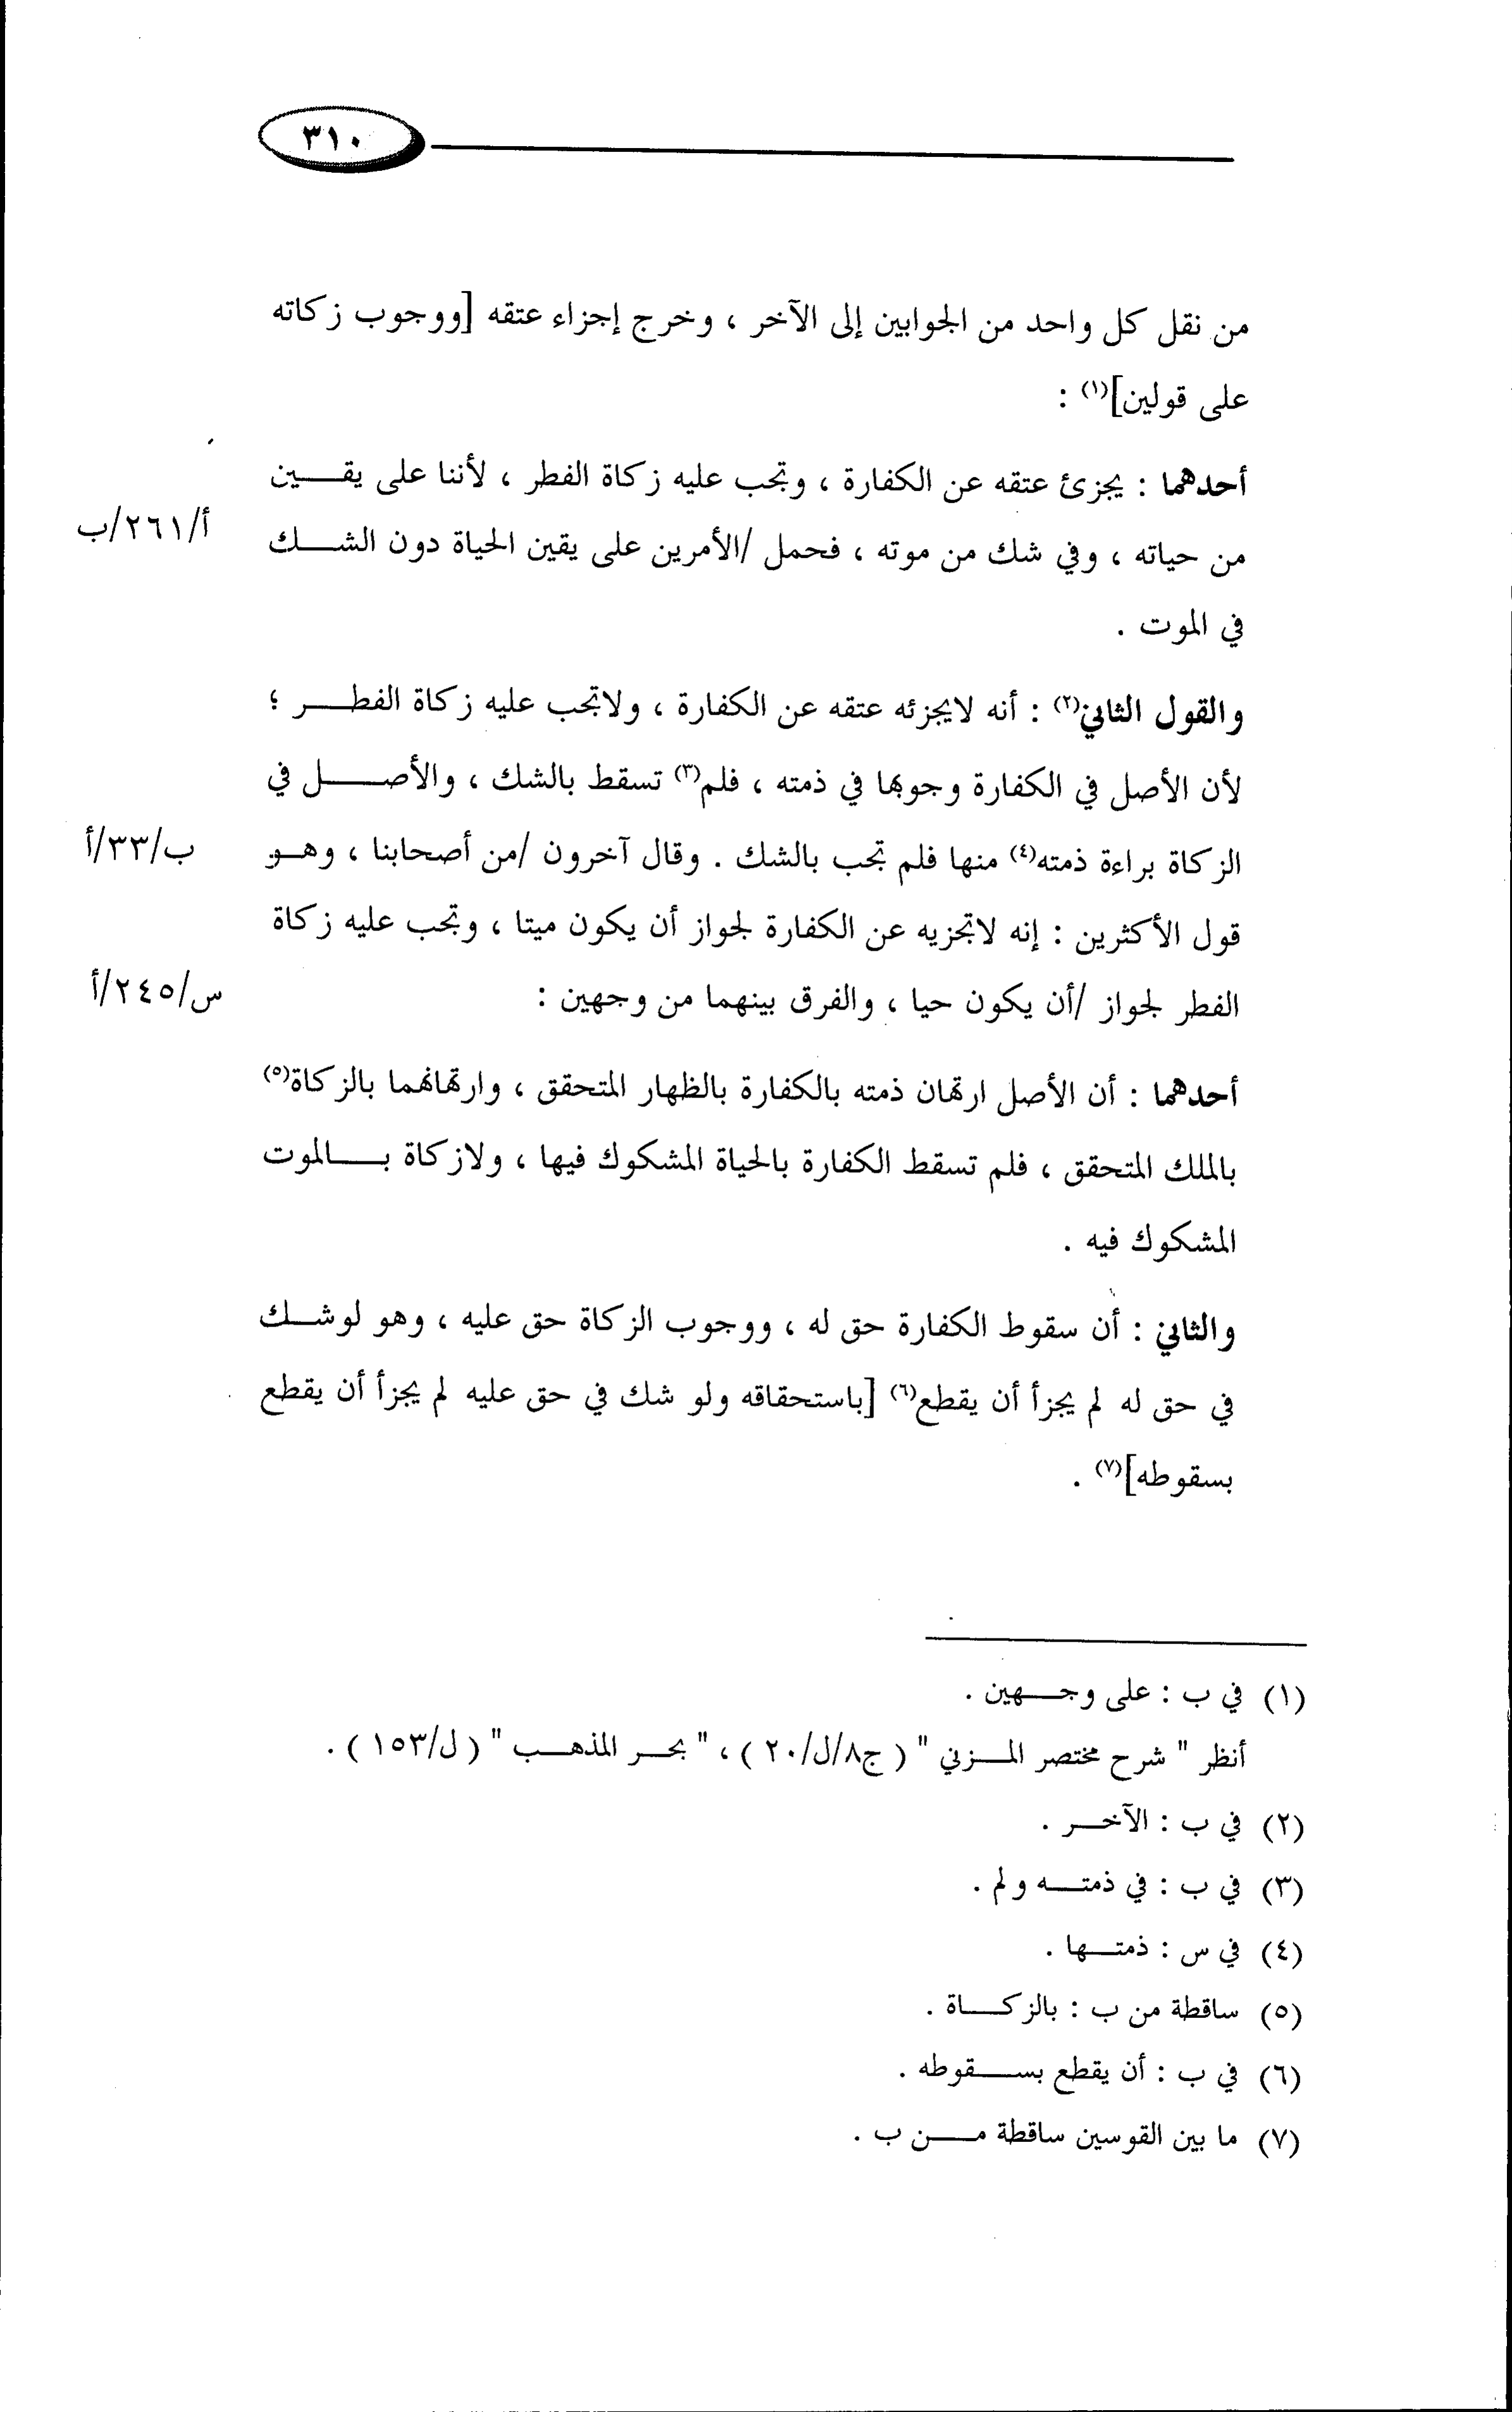 ٣١٠
من نقل كل واحد من الجوابين إلى الآخر ، وخرج إجزاء عتقه [ووجوب زكاته
على قولين](١) :
أحدهما : يجزئ عتقه عن الكفارة ، وتجب عليه زكاة الفطر ، لأننا على يقين
أ/٢٦١/ب
من حياته ، وفي شك من موته ، فحمل /الأمرين على يقين الحياة دون الشك
في الموت .
والقول الثاني(٢) : أنه لايجزئه عتقه عن الكفارة ، ولاتجب عليه زكاة الفطر ؛
لأن الأصل في الكفارة وجوبها في ذمته ، فلم(٣) تسقط بالشك ، والأصل في
الزكاة براءة ذمته(٤) منها فلم تجب بالشك . وقال آخرون /من أصحابنا ، وهو
ب/٣٣/أ
قول الأكثرين : إنه لاتجزيه عن الكفارة لجواز أن يكون ميتا ، وتجب عليه زكاة
الفطر لجواز /أن يكون حيا ، والفرق بينهما من وجهين :
س/٢٤٥/أ
أحدهما : أن الأصل ارتهان ذمته بالكفارة بالظهار المتحقق ، وارتهانهما بالزكاة(٥)
بالملك المتحقق ، فلم تسقط الكفارة بالحياة المشكوك فيها ، ولازكاة بالموت
المشكوك فيه .
والثاني : أن سقوط الكفارة حق له ، ووجوب الزكاة حق عليه ، وهو لوشك
في حق له لم يجزأ أن يقطع(٦) [باستحقاقه ولو شك في حق عليه لم يجزأ أن يقطع
بسقوطه](٧) .
(١) في ب : على وجهين .
أنظر " شرح مختصر المزني " ( ج٨/ل/٢٠ ) ، " بحر المذهب " ( ل/١٥٣ ) .
(٢) في ب : الآخر .
(٣) في ب : في ذمته ولم .
(٤) في س : ذمتها .
(٥) ساقطة من ب : بالزكاة .
(٦) في ب : أن يقطع بسقوطه .
(٧) ما بين القوسين ساقطة من ب .